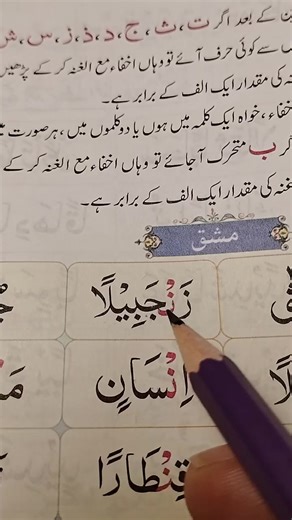 کے بعد اگر ت، ث، ج، د، ذ، ز، س، ش
سے کوئی حرف آئے تو وہاں اخفاء مع الغنہ کر کے پڑھیں
کی مقدار ایک الف کے برابر ہے۔
اخفاء، خواہ ایک کلمہ میں ہوں یا دو کلموں میں، ہر صورت میں
ب متحرک آ جائے تو وہاں اخفاء مع الغنہ کر کے
غنہ کی مقدار ایک الف کے برابر ہے۔
مشق
زَنْجَبِيْلًا
اِنْسَانٍ
قِنْطَارًا